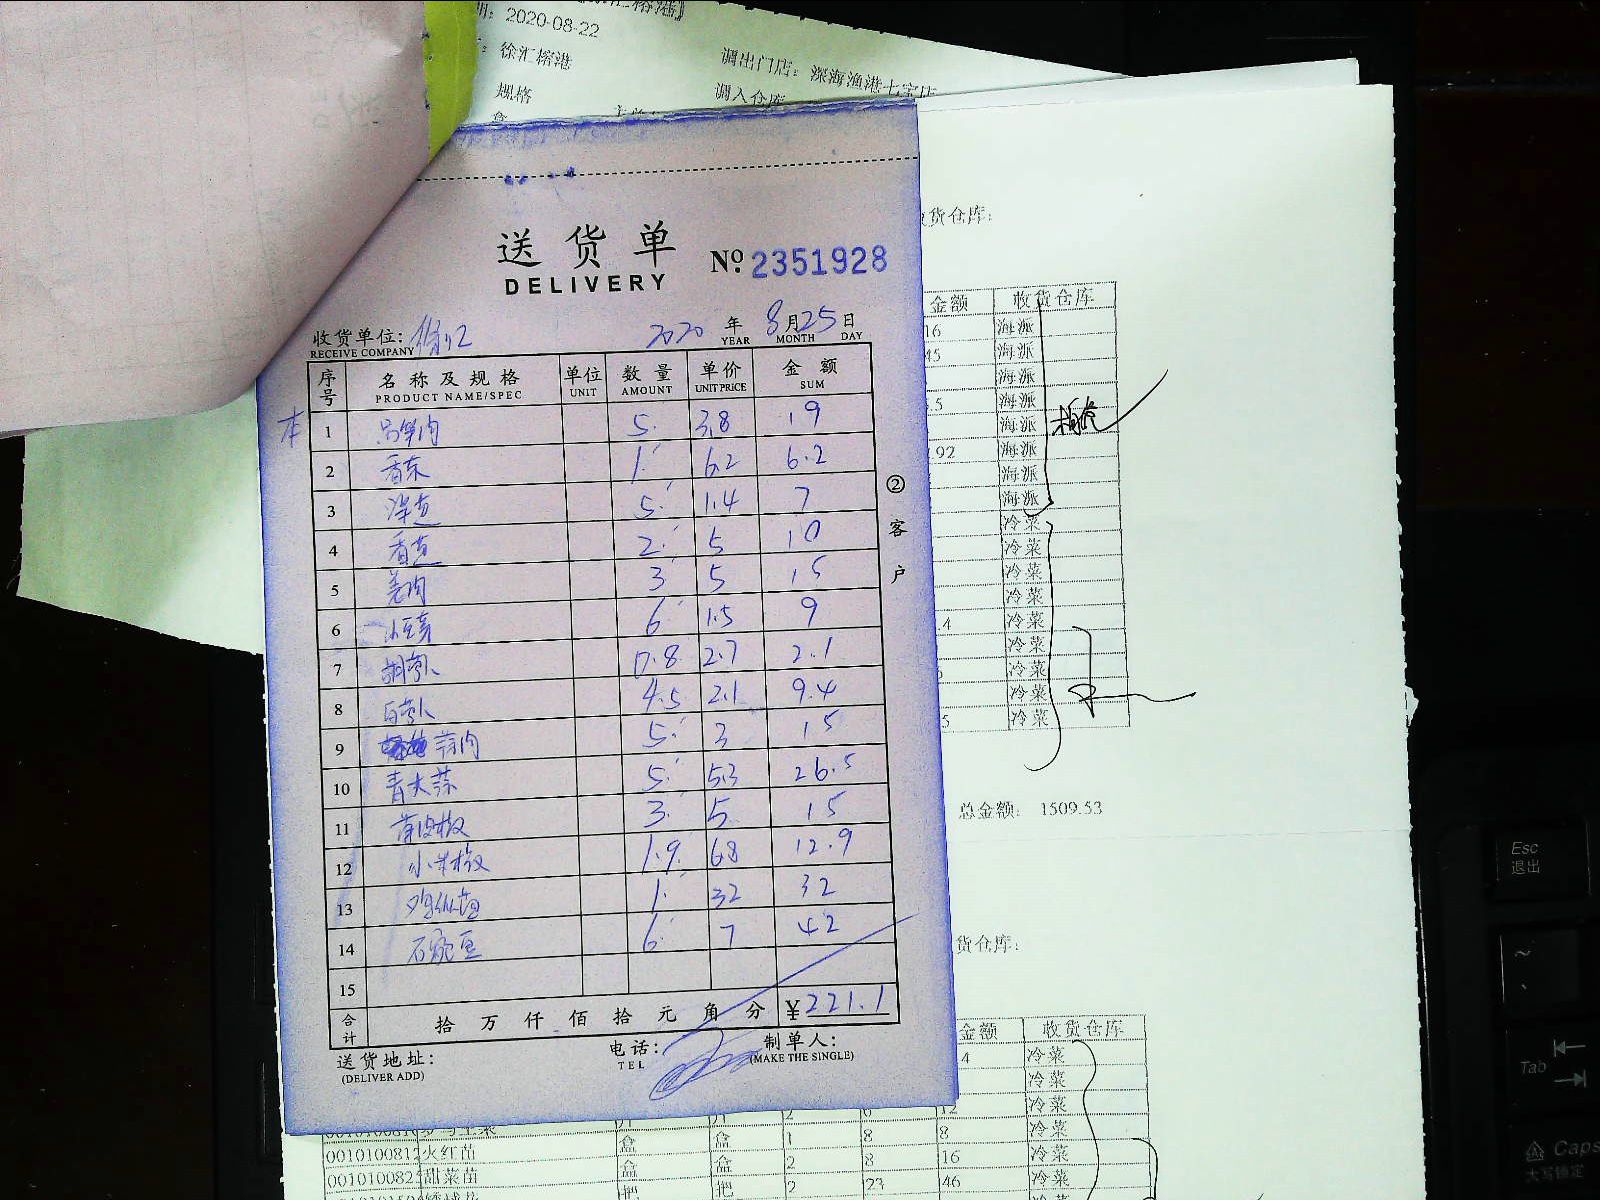 2020-08-22
徐汇榕港
调出门店: 深海渔港七宝店
规格
调入仓库
盒
送货单
DELIVERY
№ 2351928
收货单位: 徐汇 2020 年 8 月 25 日
RECEIVE COMPANY YEAR MONTH DAY
序号 名称及规格 单位 数量 单价 金额
PRODUCT NAME/SPEC UNIT AMOUNT UNIT PRICE SUM
本
1 5 3.8 19
2 香菜 1 6.2 6.2
3 洋葱 5 1.4 7
4 香葱 2 5 10
5 姜肉 3 5 15
6 6 1.5 9
7 胡萝卜 0.8 2.7 2.1
8 白萝卜 4.5 2.1 9.4
9 蒜肉 5 3 15
10 青大蒜 5 5.3 26.5
11 薄皮椒 3 5 15
12 小米椒 1.9 6.8 12.9
13 1 32 32
14 6 7 42
15
合计 拾 万 仟 佰 拾 元 角 分 ¥221.1
送货地址: 电话: 制单人:
(DELIVER ADD) TEL (MAKE THE SINGLE)
②客户
货仓库:
金额 收货仓库
16 海派
45 海派
海派
.5 海派
海派
.92 海派
海派
海派
冷菜
冷菜
冷菜
冷菜
.4 冷菜
冷菜
冷菜
冷菜
5 冷菜
总金额: 1509.53
货仓库:
金额 收货仓库
4 冷菜
冷菜
2 6 12 冷菜
盒 盒 1 8 8 冷菜
001010081 火红苗 盒 盒 2 8 16 冷菜
001010082 甜菜苗 把 把 2 23 46 冷菜
Esc
退出
Tab
Caps
大写锁定